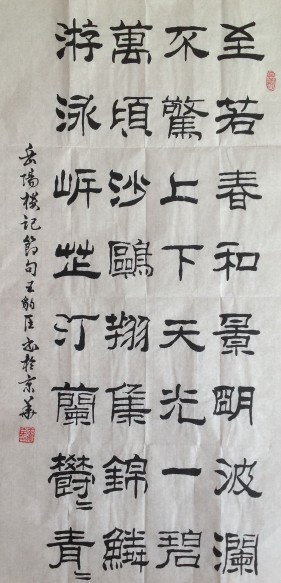 至若春和景明波瀾
不驚上下天光一碧
萬頃沙鷗翔集錦鱗
游泳岸芷汀蘭鬱〻青〻
岳陽樓記節句王 書於京華